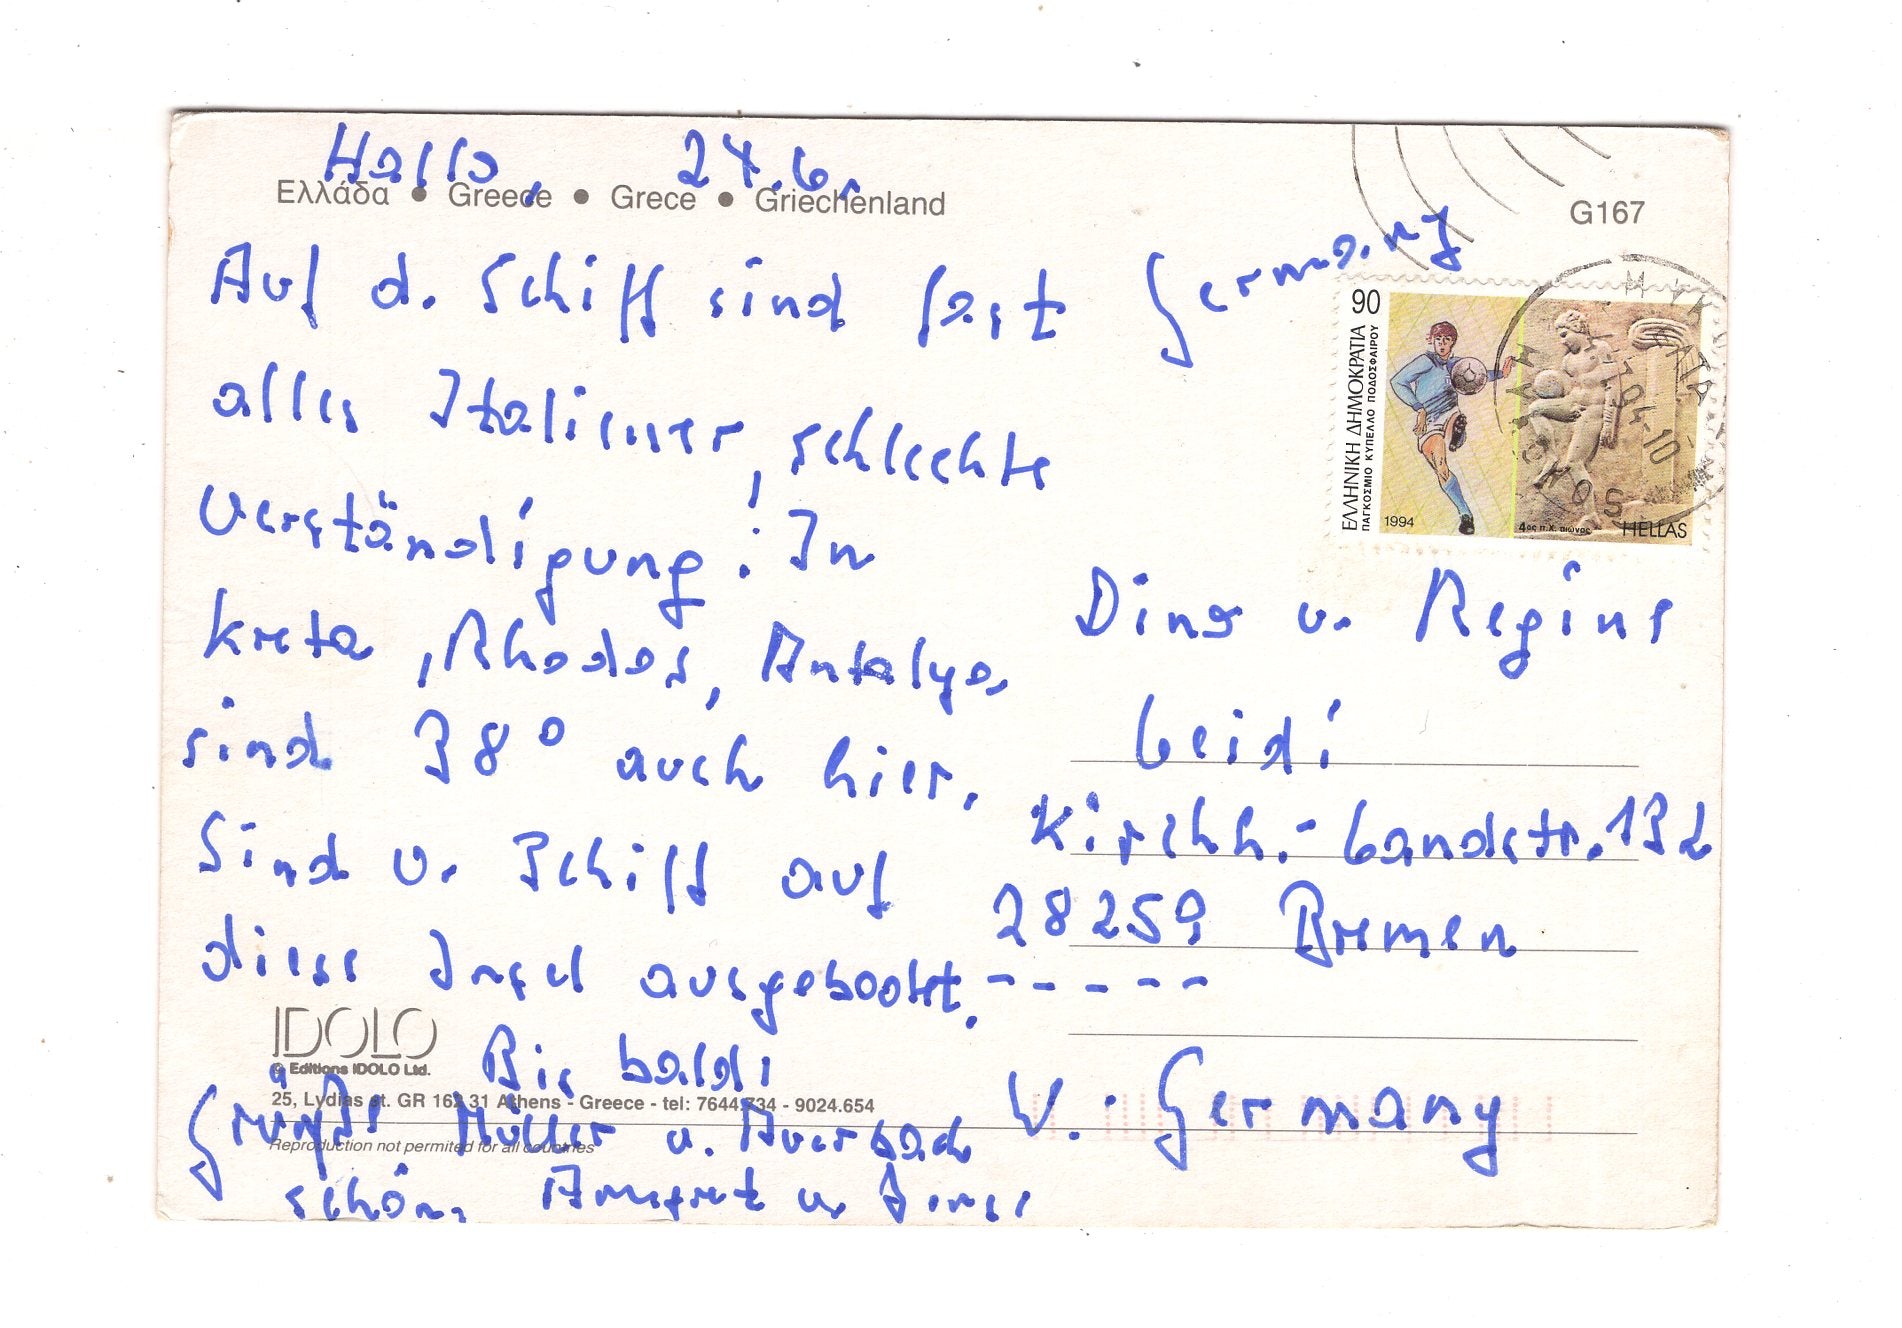 Hallo, 24.6.
Ελλάδα • Greece • Grece • Griechenland
G167
Auf d. Schiff sind fast
alles Italiener, schlechte
Verständigung! In
Kreta, Rhodos, Antalya,
sind 38° auch hier.
Sind v. Schiff auf
diese Insel ausgebootet.
Bis bald!
Grüßt Müller u. Auerbach
schön. u.
IDOLO
© Editions IDOLO Ltd.
25, Lydias st. GR 162 31 Athens - Greece - tel: 7644.734 - 9024.654
Reproduction not permited for all countries
Germany
90
ΕΛΛΗΝΙΚΗ ΔΗΜΟΚΡΑΤΙΑ
ΠΑΓΚΟΣΜΙΟ ΚΥΠΕΛΛΟ ΠΟΔΟΣΦΑΙΡΟΥ
1994
4ος π.Χ. αιώνας
HELLAS
u. Regina
Leidi
Kirchh.-Landstr. 132
28259 Bremen
W. Germany